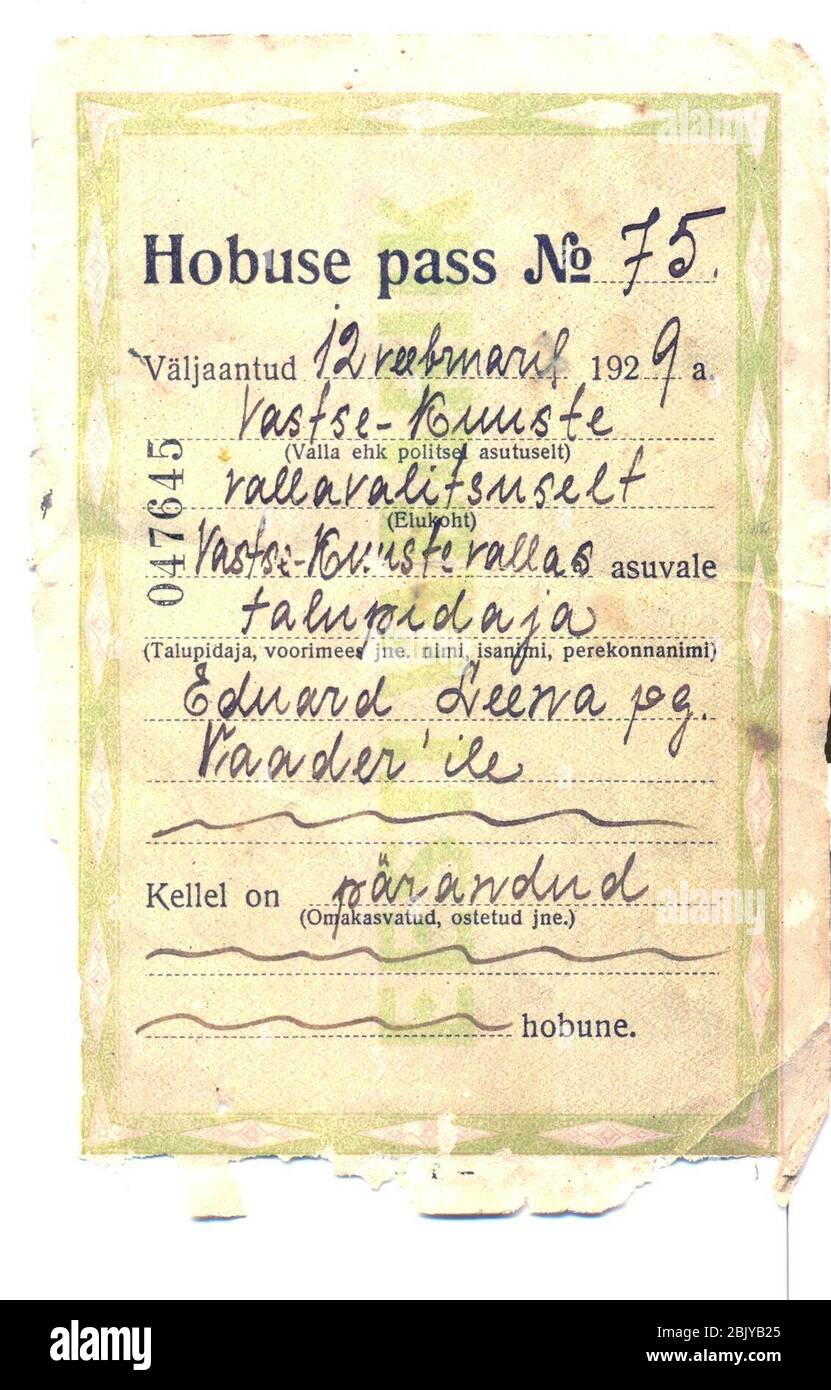 Hobuse pass № 75.
Väljaantud 12 veebruaril 1929 a.
Vastse-Kuuste
(Valla ehk politsei asutuselt)
vallavalitsuselt
(Elukoht)
Vastse-Kuuste vallas asuvale
talupidaja
(Talupidaja, voorimees jne. nimi, isanimi, perekonnanimi)
Eduard Leena pg.
Vaader'ile
Kellel on pärandud
(Omakasvatud, ostetud jne.)
hobune.
047645
EESTI VABARIIK
alamy
alamy
alamy
Image ID: 2BJYB25
www.alamy.com